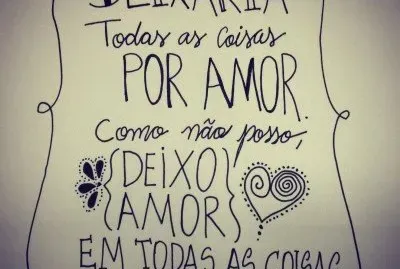 DEIXARIA
Todas as coisas
POR AMOR.
Como não posso,
DEIXO
AMOR
EM TODAS AS COISAS